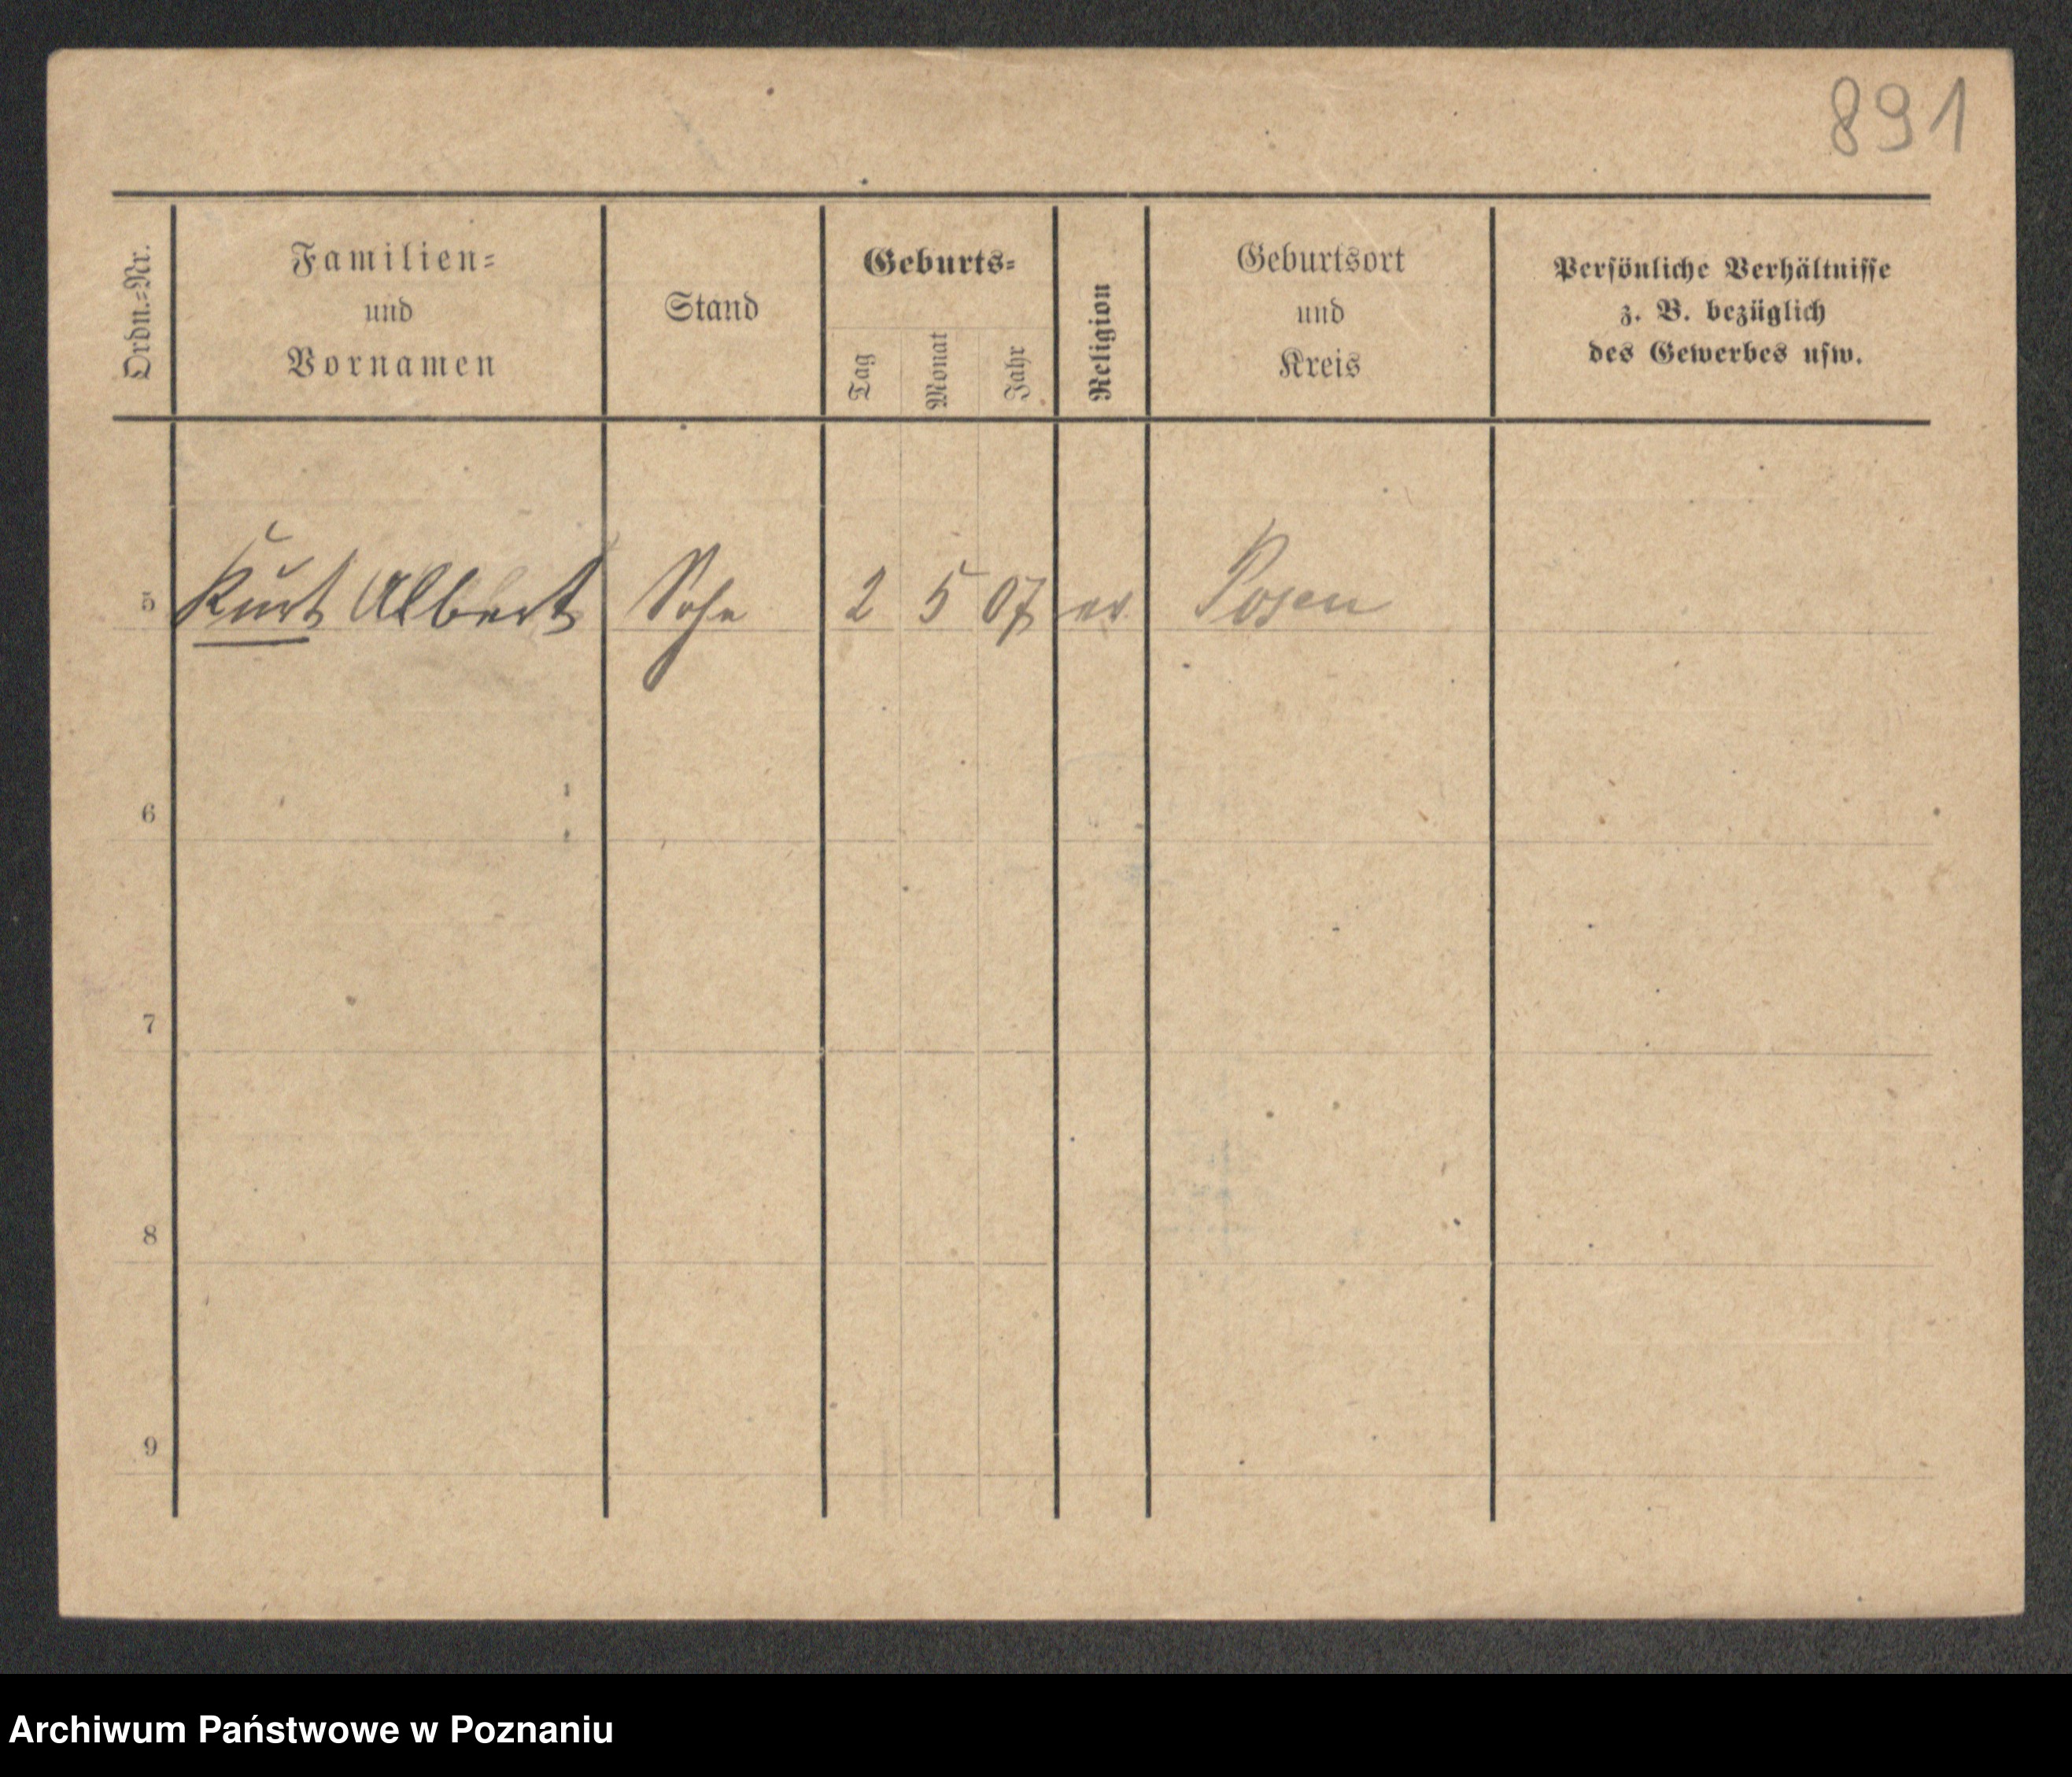 891
Ordn.=Nr.
Familien=
und
Vornamen
Stand
Geburts=
Tag
Monat
Jahr
Religion
Geburtsort
und
Kreis
Persönliche Verhältnisse
z. B. bezüglich
des Gewerbes usw.
5 Kurt Albert Sohn 2 5 07 ev Posen
6
7
8
9
Archiwum Państwowe w Poznaniu